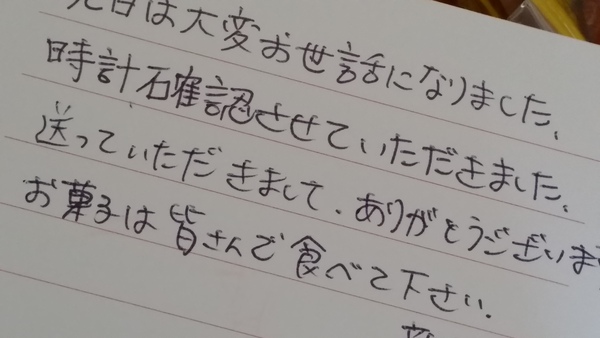 先日は大変お世話になりました。
時計確認させていただきました。
送っていただきまして、ありがとうございま
お菓子は皆さんで食べて下さい。